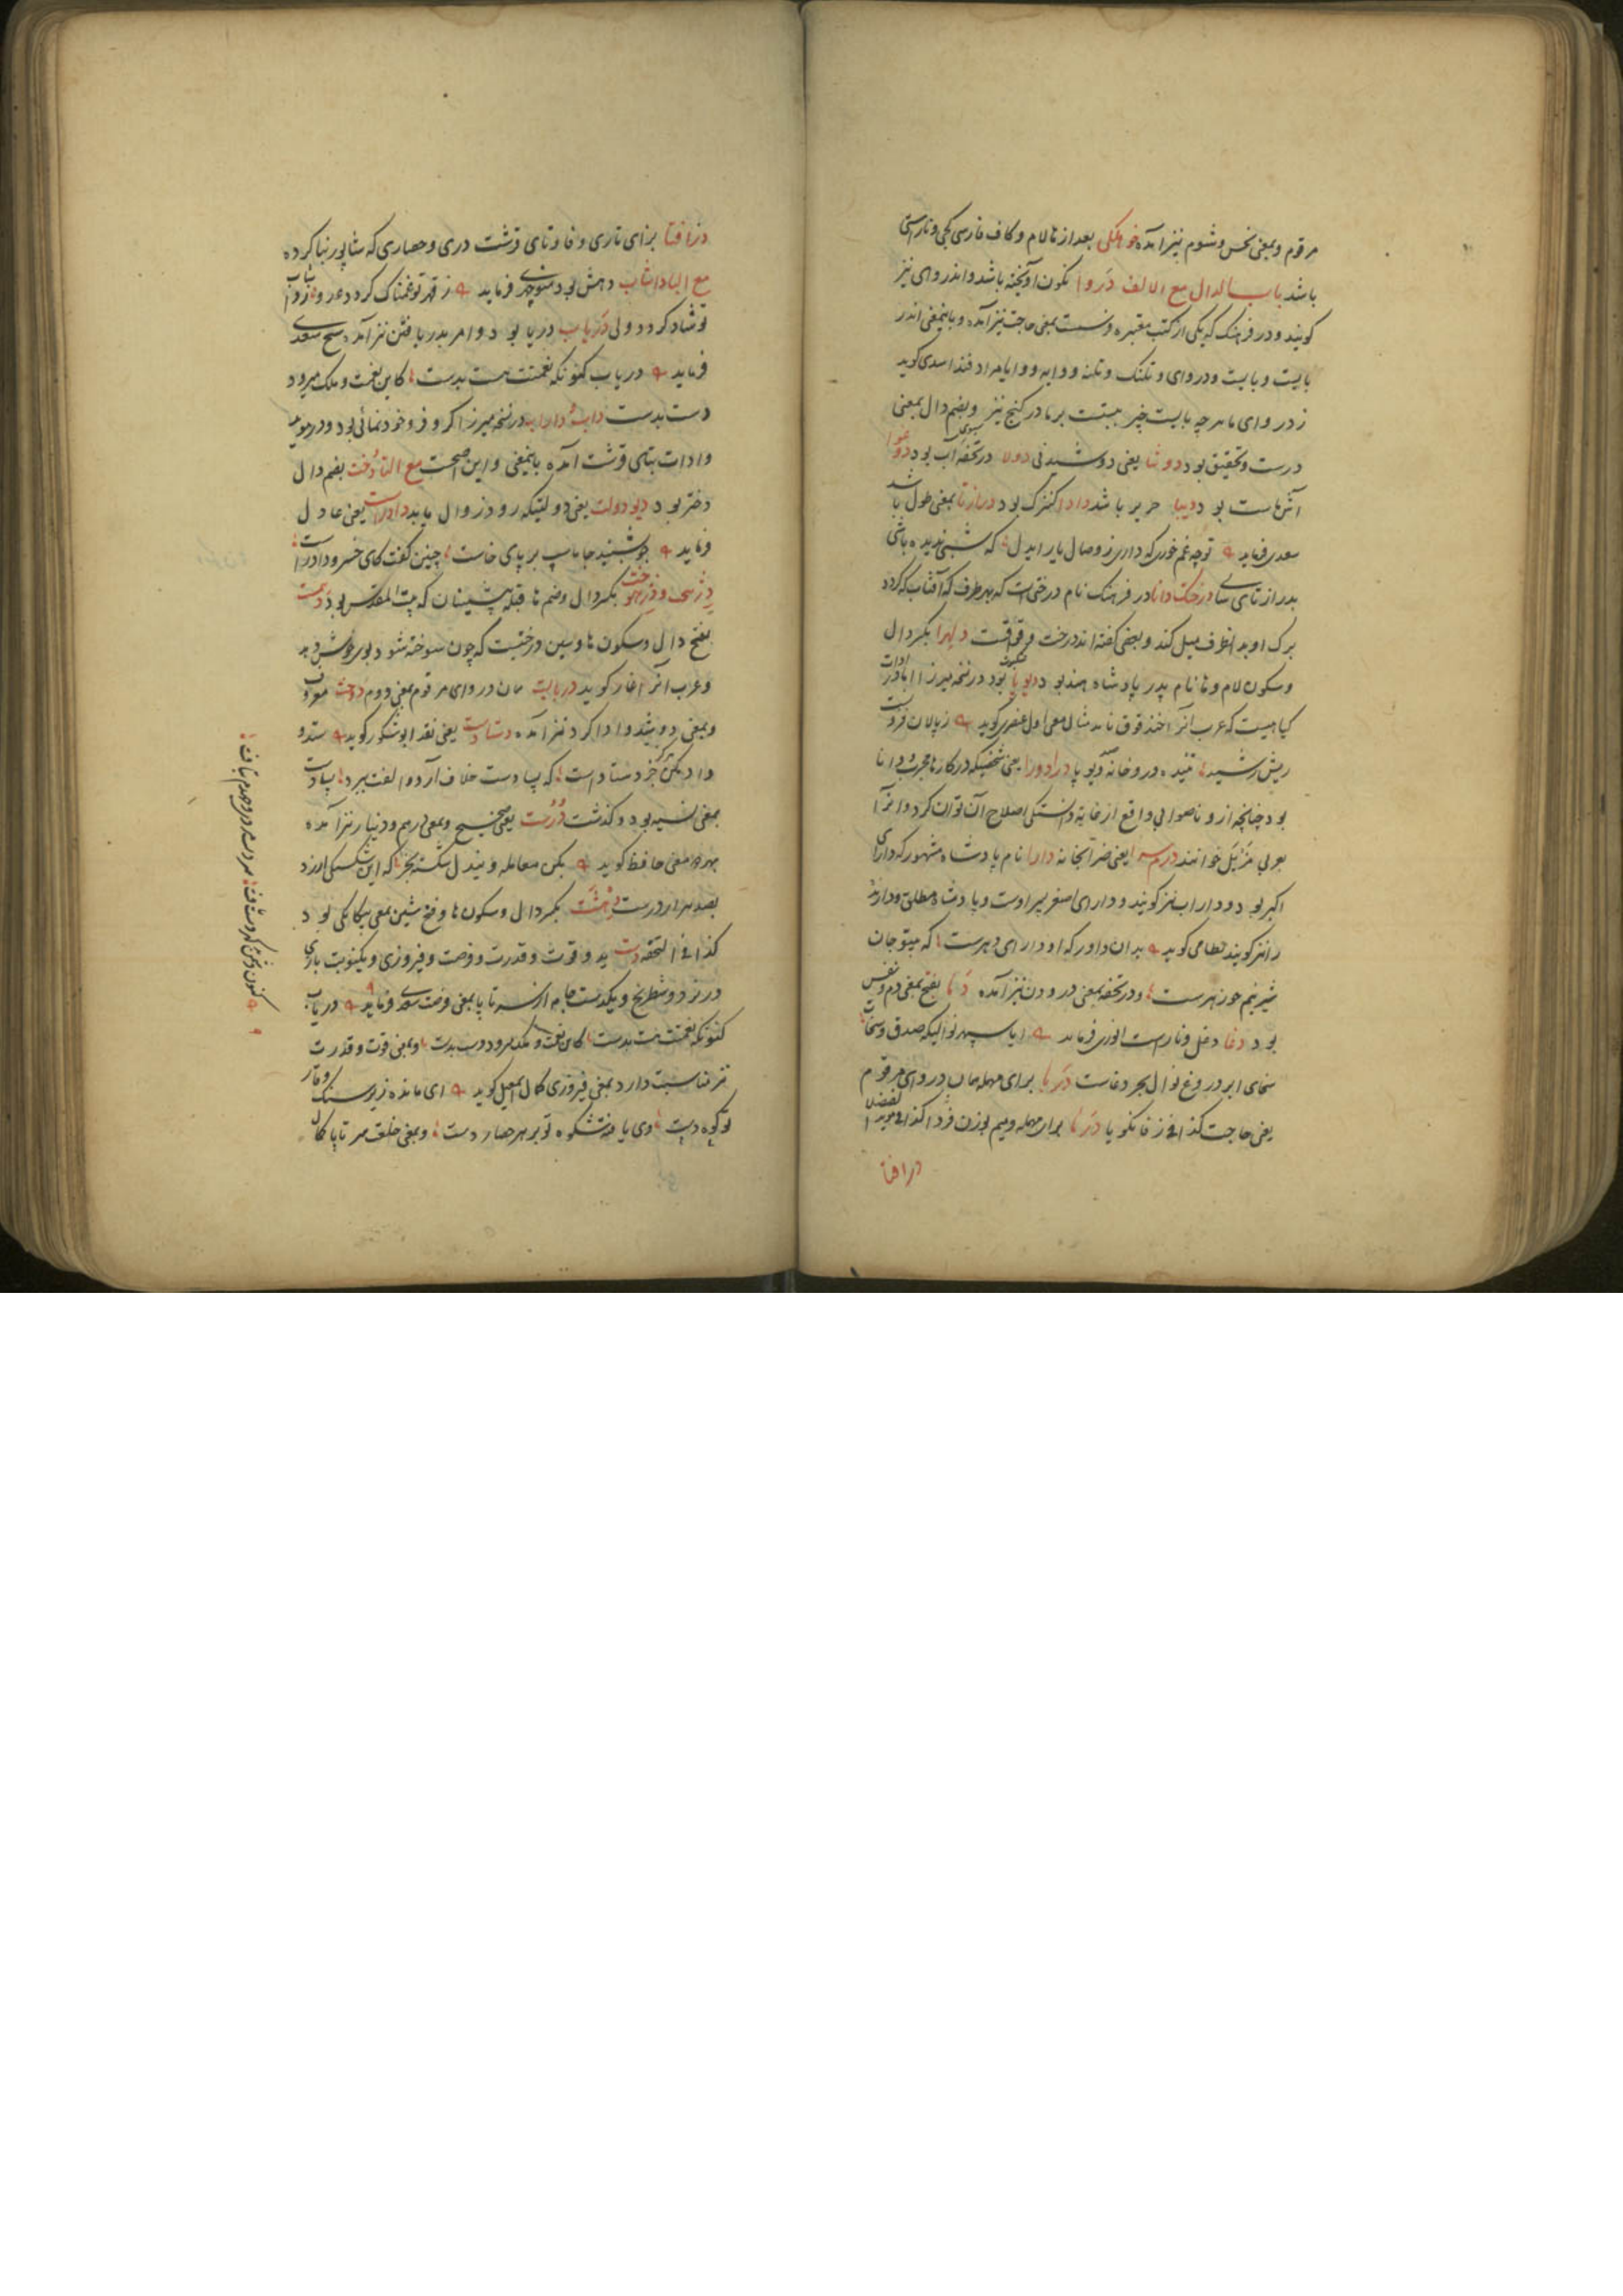 مرقوم وبمعنی نحس وشوم نیز آمده خوهلکی بعد از ها لام وکاف فارسی کجی وناراستی
باشد باب الدال مع الالف دَروا نکون آویخته باشد واندروای نیز
کویند ودر فرهنک که یکی از کتب معتبره بمعنی حاجت نیز آمده وباینمعنی اندر
بایست وبایست ودروای وتلنک وتلنه ووایه ووایا مرادفند اسدی کوید
ز دروای ما هر چه بایست چیز در کنج نیز وبضم دال بمعنی
درست وتحقیق بود دوشا یعنی دوشیدنی دولا در تحفه آب بود
بود دیبا حریر باشد دادا کنیزک بود درازنا بمعنی طول باشد
سعدی فرماید تو چه غم خوری که داری ز وصال یار ای دل که شبی ندیده باشی
بدرازنای درخت دانا در فرهنک نام درختی است که بهر طرف که آفتاب کردد
برک او بدانطرف میل کند وبعضی کفته اند درخت وقواقست دلهرا بکسر دال
وسکون لام وها نام پدر پادشاه هند بود دیوپا بود در نسخه میرزا
کیاهیست که عرب آنرا خذقوق نامند مثال معنی اول عنصری کوید ز پالان فزونست
ریش رشید تنیده در وخانه دیوپا درادورا یعنی شخصیکه در کارها مجرب ودانا
بود چنانچه از و ناصوابی واقع از غایة دانستکی اصلاح آن توان کرد وآنرا
بعربی مزیل خوانند درم سرا یعنی ضرابخانه دارا نام پادشاه مشهور که دارای
اکبر بود وداراب نیز کویند ودارای اصغر پسر اوست وپادشاه مطلق ودارنده
را نیز کویند نظامی کوید بدان داور که او دارای دهرست که بیتو جان
شیرینم چو زهرست ودر تحفه بمعنی درودن نیز آمده دَما بفتح بمعنی دم ونفس
بود دغا دغل وناراست انوری فرماید ایا سپهر نوالیکه صدق وسخات
سخای ابر دروغ نوال بحر دغاست دَربا برای مهمله همان دروای مرقوم
یعنی حاجت کذا فی زفانکویا دَرما برای مهمله ومیم بوزن فردا کذا فی موید الفضلا
درافتا
دزافتا بزای تازی وفا وتای قرشت دری وحصاری که شاپور بنا کرده
مع الباداشاب دهش بود منوچهری فرماید ز قهر تو غمناک کردد عدو ز داشاب
تو شاد کردد ولی دَریاب دریا بود وامر بدریافتن نیز آمده شیخ سعدی
فرماید دریاب کنونکه نعمتت هست بدست کاین نعمت وملک میرود
دست بدست داب داراب در نسخه میرزا کر وفر وخودنمائی بود ودر موید
وادات بتای قرشت آمده باینمعنی واین اصحست مع التا دُخت بضم دال
دختر بود دیودولت یعنی دولتیکه زود زوال یابد دادراست یعنی عادل
فرماید چو بشنید جاماسب بر پای خاست چنین کفت کای خسرو دادراست
دِژهخت ودژهوخت بکسر دال وضم ها قبله پیشینیان که بیت المقدس بود دهمست
بفتح دال وسکون ها وسین درختیست که چون سوخته شود بوی خوش دهد
وعرب آنرا غار کوید دربایست همان دروای مرقوم بمعنی دوم دوخت معروف
وبمعنی دوشید وادا کرد نیز آمده دستادست یعنی نقد ابوشکور کوید ستد و
داد مکن جز دستادست که پسادست خلاف آرد والفت ببرد پسادست
بمعنی نسیه بود وکذشت دُرُست یعنی صحیح وبمعنی درهم ودینار نیز آمده
بهر دو معنی حافظ کوید بکن معامله ویندل شکسته بخر که این شکستکی ارزد
بصد هزار درست دِهشَت بکسر دال وسکون ها وفتح شین بمعنی یکانکی بود
کذا فی التحفه دست ید وقوت وقدرت وفرصت وفیروزی ویکنوبت بازی
در نرد وشطرنج ویکدست جامه از سر تا پا بمعنی فرصت سعدی فرماید دریاب
کنونکه نعمتت هست بدست کاین نعمت وملک میرود دست بدست وبمعنی قوت وقدرت
نیز مناسبت دارد بمعنی فیروزی کمال اسمعیل کوید ای مانده زیر سنک وقار
تو کوه دست وی یافته شکوه تو بر هر حصار دست وبمعنی خلعت سر تا پا کمال